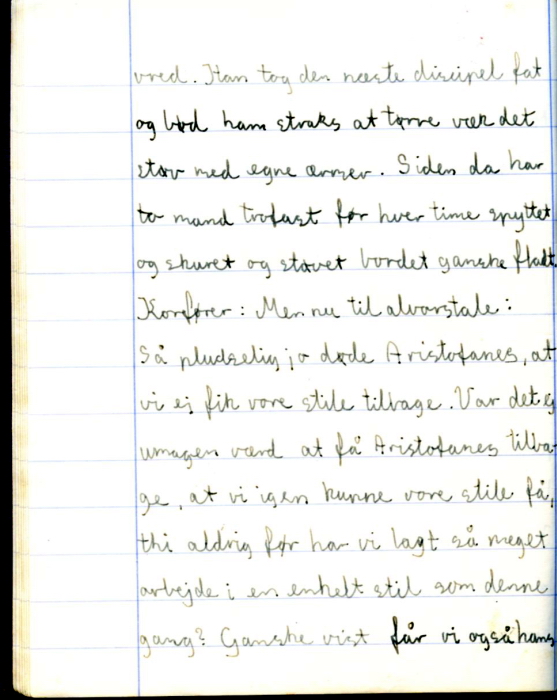 vred. Han tog den næste discipel fat
og bød ham straks at tørre væk det
støv med egne ærmer. Siden da har
to mand trofast før hver time spyttet
og skuret og støvet bordet ganske fladt.
Korfører: Men nu til alvorstale:
Så pludselig jo døde Aristofanes, at
vi ej fik vore stile tilbage. Var det ej
umagen værd at få Aristofanes tilba-
ge, at vi igen kunne vore stile få,
thi aldrig før har vi lagt så meget
arbejde i en enkelt stil som denne
gang? Ganske vist får vi også hans